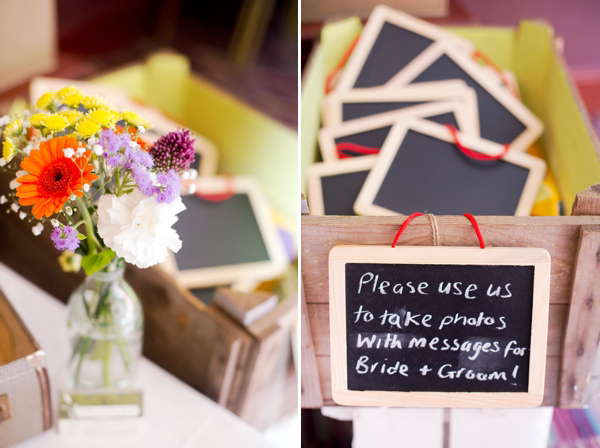 Please use us
to take photos
with messages for
Bride + Groom!